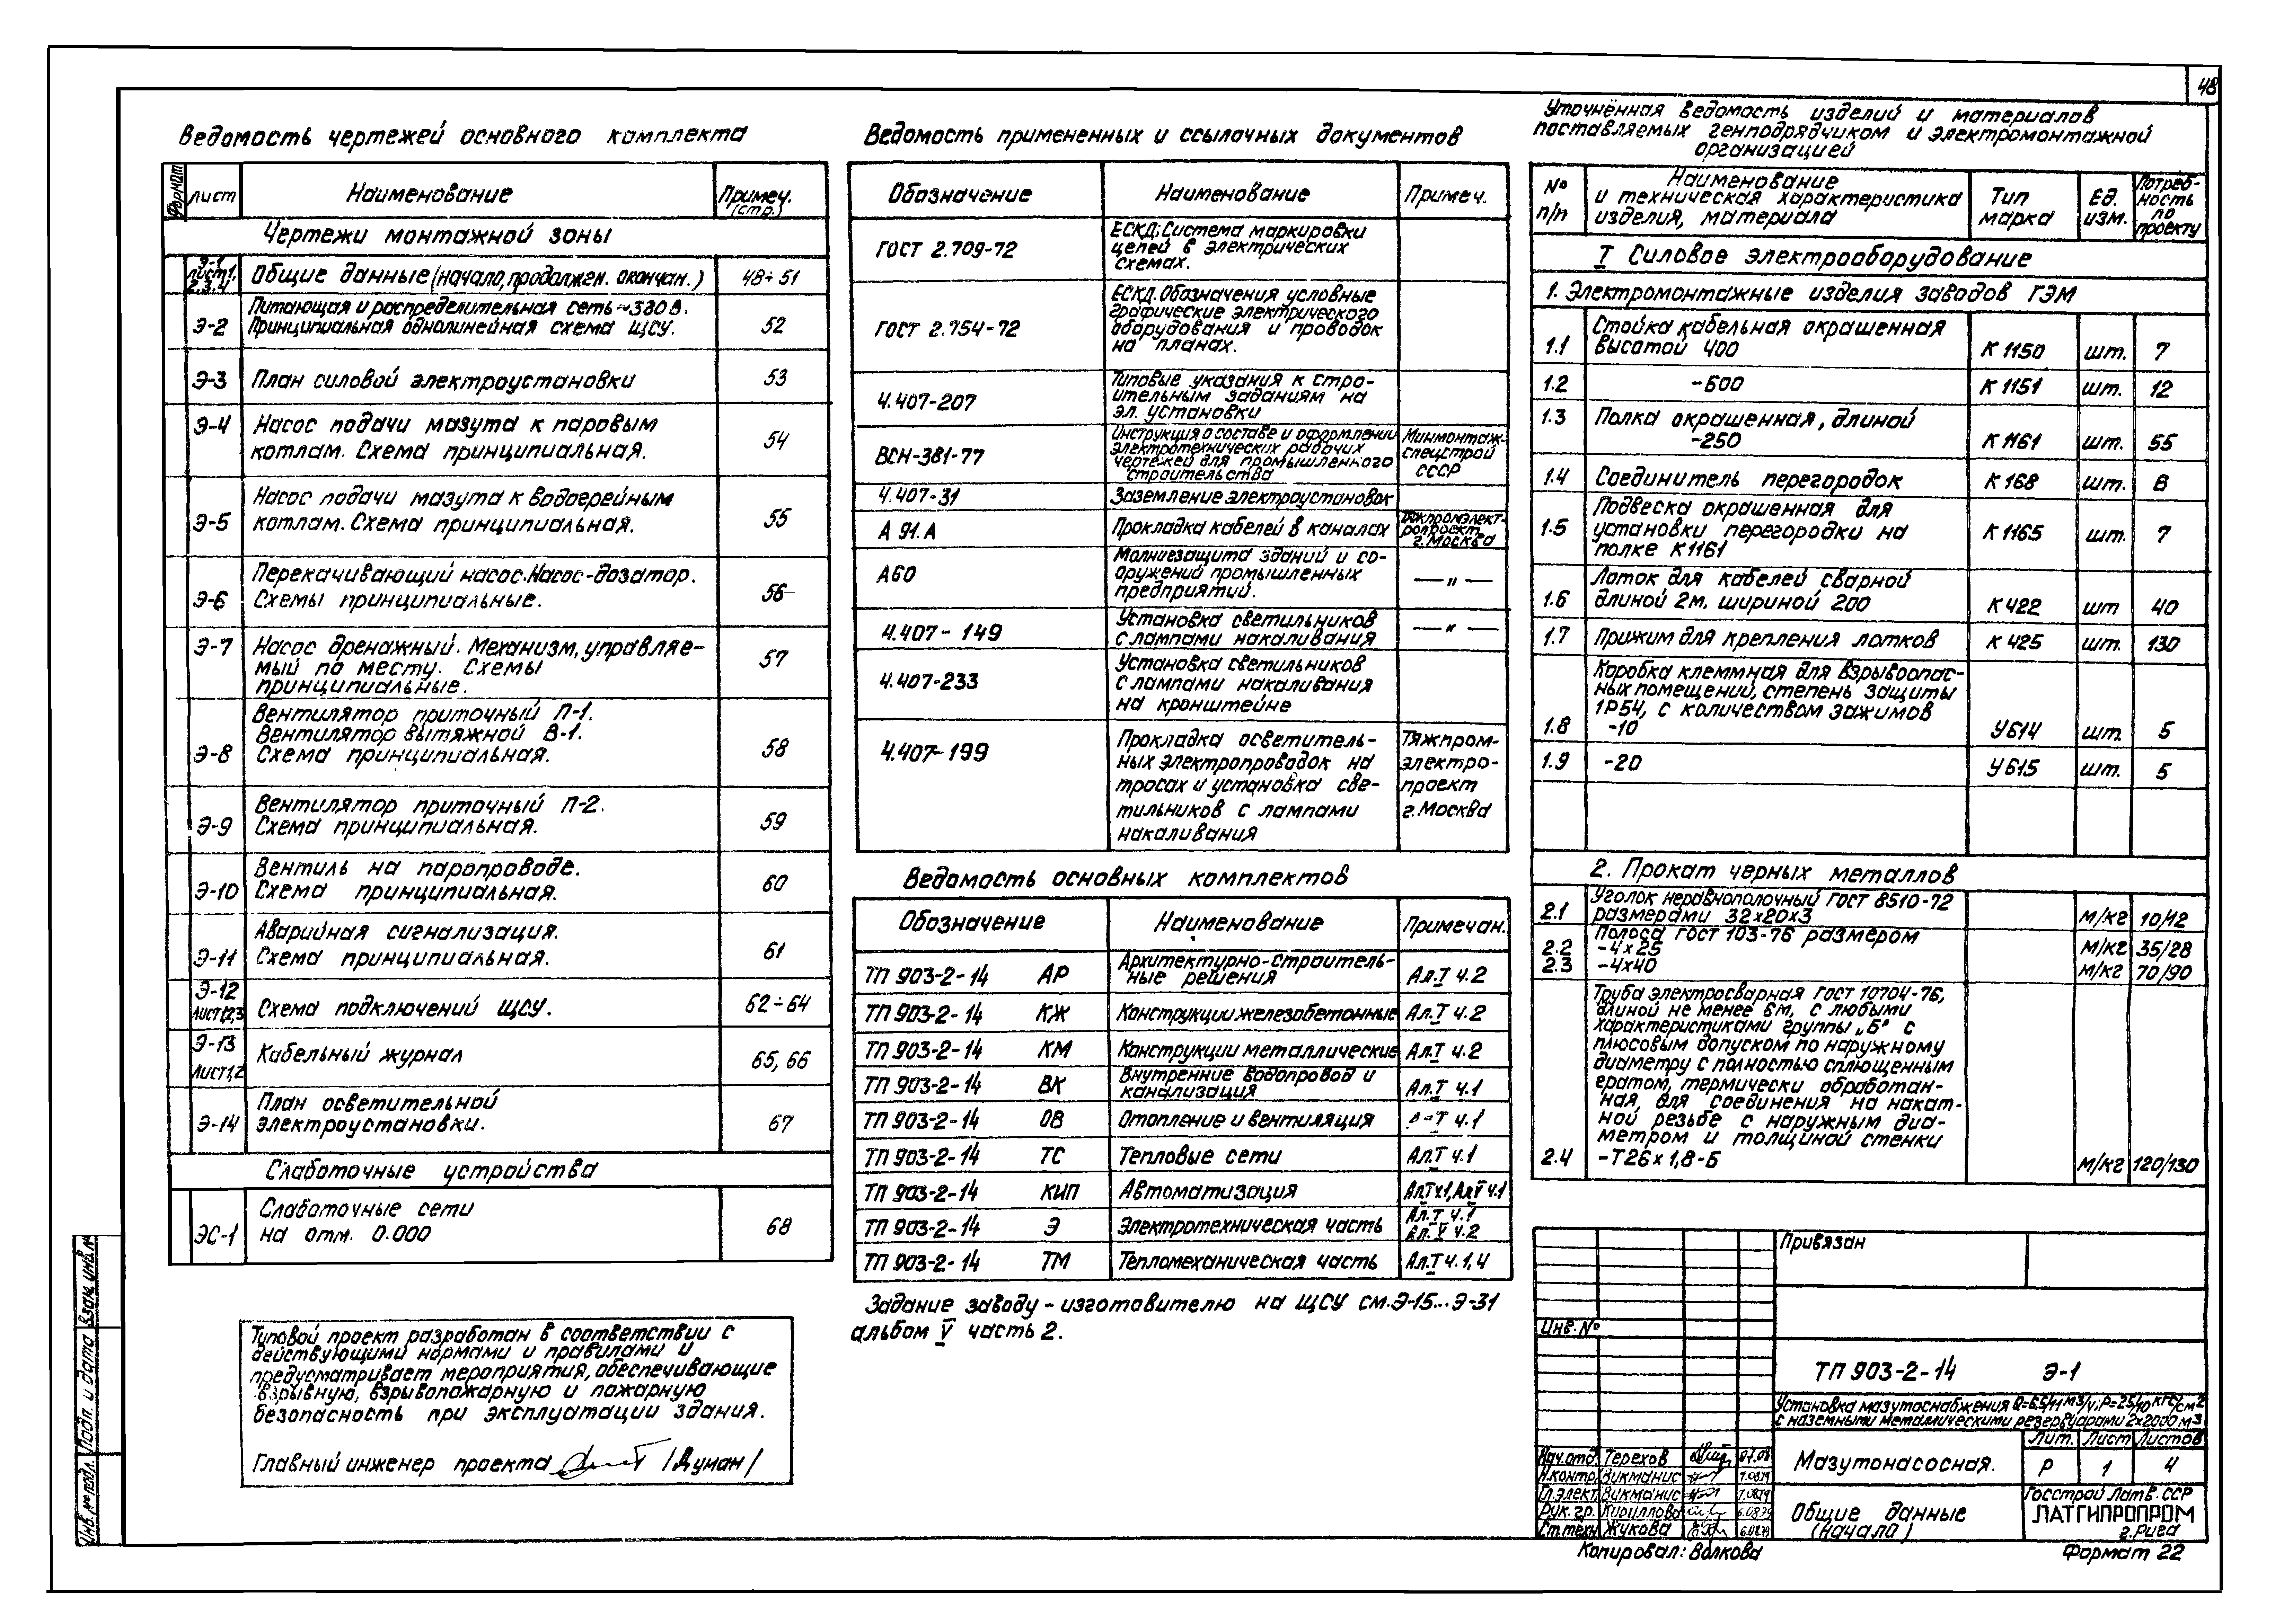 48
Ведомость чертежей основного комплекта
Формат
Лист
Наименование
Примеч.
(стр.)
Чертежи монтажной зоны
Э-1
лист 1,
2,3,4
Общие данные (начало, продолжен. окончан.)
48÷51
Питающая и распределительная сеть ~380 В.
Э-2
Принципиальная однолинейная схема ЩСУ.
52
Э-3
План силовой электроустановки
53
Э-4
Насос подачи мазута к паровым
котлам. Схема принципиальная.
54
Насос подачи мазута к водогрейным
Э-5
котлам. Схема принципиальная.
55
Перекачивающий насос. Насос-дозатор.
Э-6
Схемы принципиальные.
56
Э-7
Насос дренажный. Механизм, управляе-
мый по месту. Схемы
принципиальные.
57
Вентилятор приточный П-1.
Вентилятор вытяжной В-1.
Э-8
Схема принципиальная.
58
Вентилятор приточный П-2.
Э-9
Схема принципиальная.
59
Вентиль на паропроводе.
Э-10
Схема принципиальная.
60
Аварийная сигнализация.
Э-11
Схема принципиальная.
61
Э-12
Лист 1,2,3
Схема подключений ЩСУ.
62÷64
Э-13
Лист 1,2
Кабельный журнал
65, 66
План осветительной
Э-14
электроустановки.
67
Слаботочные устройства
Слаботочные сети
ЭС-1
на отм. 0.000
68
Типовой проект разработан в соответствии с
действующими нормами и правилами и
предусматривает мероприятия, обеспечивающие
взрывную, взрывопожарную и пожарную
безопасность при эксплуатации здания.
Главный инженер проекта /Думан/
Ведомость примененных и ссылочных документов
Обозначение
Наименование
Примеч.
ГОСТ 2.709-72
ЕСКД. Система маркировки
цепей в электрических
схемах.
ГОСТ 2.754-72
ЕСКД. Обозначения условные
графические электрического
оборудования и проводок
на планах.
4.407-207
Типовые указания к стро-
ительным заданиям на
эл. установки
ВСН-381-77
Инструкция о составе и оформлении
электротехнических рабочих
чертежей для промышленного
строительства
Минмонтаж-
спецстрой
СССР
4.407-31
Заземление электроустановок
А 91. А
Прокладка кабелей в каналах
Тяжпромэлект-
ропроект
г. Москва
А60
Молниезащита зданий и со-
оружений промышленных
предприятий.
— " —
4.407-149
Установка светильников
с лампами накаливания
— " —
4.407-233
Установка светильников
с лампами накаливания
на кронштейне
4.407-199
Прокладка осветитель-
ных электропроводок на
тросах и установка све-
тильников с лампами
накаливания
Тяжпром-
электро-
проект
г. Москва
Ведомость основных комплектов
Обозначение
Наименование
Примечан.
ТП 903-2-14 АР
Архитектурно-строитель-
ные решения
Ал. I ч.2
ТП 903-2-14 КЖ
Конструкции железобетонные
Ал. I ч.2
ТП 903-2-14 КМ
Конструкции металлические
Ал. I ч.2
ТП 903-2-14 ВК
Внутренние водопровод и
канализация
Ал. I ч.1
ТП 903-2-14 ОВ
Отопление и вентиляция
ч.1
ТП 903-2-14 ТС
Тепловые сети
Ал. I ч.1
ТП 903-2-14 КИП
Автоматизация
Ал. I ч.1, Ал. V ч.1
ТП 903-2-14 Э
Электротехническая часть
Ал. I ч.1
Ал. V ч.2
ТП 903-2-14 ТМ
Тепломеханическая часть
Ал. I ч.1,4
Задание заводу-изготовителю на ЩСУ см. Э-15...Э-31
альбом V часть 2.
Уточнённая ведомость изделий и материалов
поставляемых генподрядчиком и электромонтажной
организацией
№
п/п
Наименование
и техническая характеристика
изделия, материала
Тип
марка
Ед.
изм.
Потреб-
ность
по
проекту
I Силовое электрооборудование
1. Электромонтажные изделия заводов ГЭМ
Стойка кабельная окрашенная
1.1 высотой 400 К 1150 шт. 7
1.2 -600 К 1151 шт. 12
1.3 Полка окрашенная, длиной
-250 К 1161 шт. 55
1.4 Соединитель перегородок К 168 шт. 8
Подвеска окрашенная для
1.5 установки перегородки на К 1165 шт. 7
полке К1161
Лоток для кабелей сварной
1.6 длиной 2м, шириной 200 К 422 шт 40
1.7 Прижим для крепления лотков К 425 шт. 130
Коробка клеммная для взрывоопас-
ных помещений, степень защиты
1Р54, с количеством зажимов
1.8 -10 У614 шт. 5
1.9 -20 У615 шт. 5
2. Прокат черных металлов
Уголок неравнополочный ГОСТ 8510-72
2.1 размерами 32х20х3 м/кг 10/12
Полоса ГОСТ 103-76 размером
2.2 -4х25 м/кг 35/28
2.3 -4х40 м/кг 70/90
Труба электросварная ГОСТ 10704-76,
длиной не менее 6м, с любыми
характеристиками группы „Б" с
плюсовым допуском по наружному
диаметру с полностью сплющенным
гратом, термически обработан-
ная, для соединения на накат-
ной резьбе с наружным диа-
метром и толщиной стенки
2.4 -Т26х1,8-Б м/кг 120/130
Привязан
Инв. №
ТП 903-2-14 Э-1
Установка мазутоснабжения Q=6,5/11 м3/ч; Р=25/10 кгс/см2
с наземными металлическими резервуарами 2х2000 м3
Нач. отд. Терехов 07.08
Н. контр. Викманис 7.0879
Гл. элект. Викманис 7.0879
Рук. гр. Кириллова 6.0879
Ст. техн. Жукова 6.0879
Мазутонасосная.
Лит. Лист Листов
Р 1 4
Общие данные
(начало)
Госстрой Латв. ССР
ЛАТГИПРОПРОМ
г. Рига
Копировал: Волкова
Формат 22
Взам. инв. №
Подп. и дата
Инв. № подл.